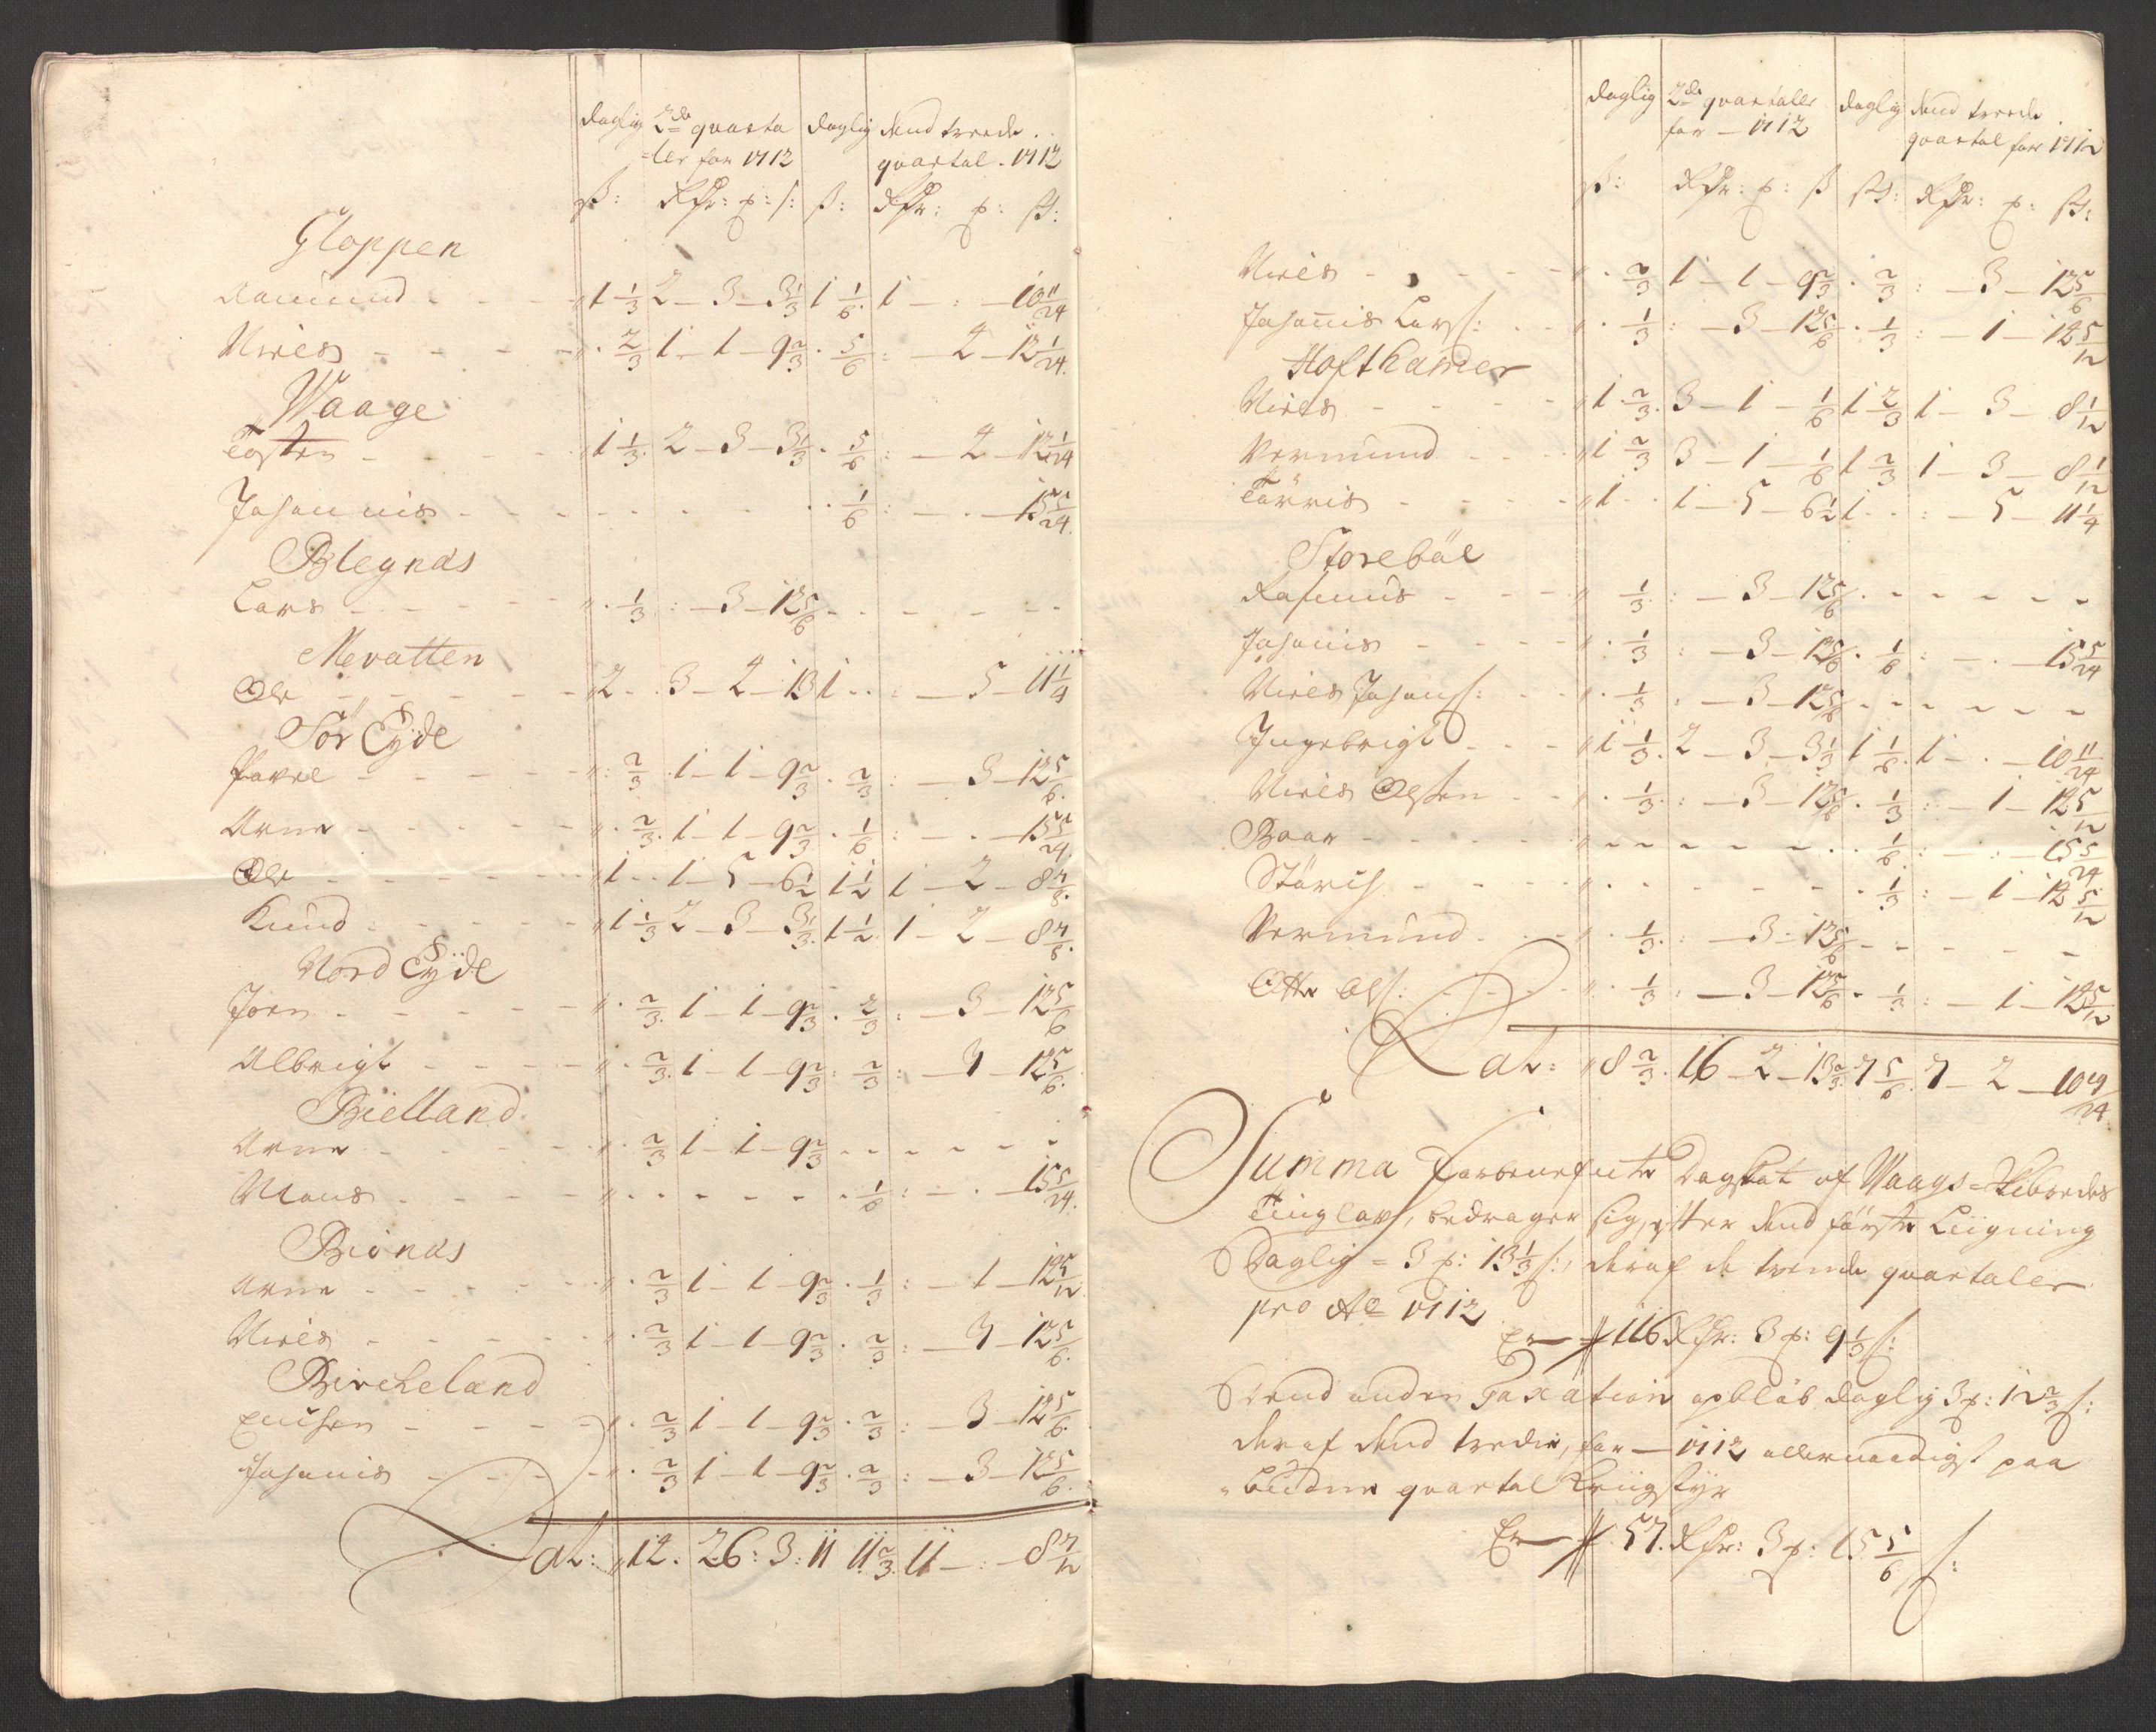 daglig 2de quarta daglig dend treede
=ler for 1712 quartal. 1712
ß: Rdr: x: ß: ß: Rdr: x: ß:
Gloppen
Aamund - - - " 1 1/3 2 - 3 - 3 1/3 1 1/6 1 - : - 10 11/24
Niels - - - " . 2/3 1 - 1 - 9 2/3 . 5/6 : - 4 - 12 1/24
Waage
Tosten - - - " 1 1/3 2 - 3 - 3 1/3 . 5/6 : - 4 - 12 1/24
Johannis - - - . 1/6 : - . - 15 5/24
Blegnæs
Lars - - - " . 1/3 : - 3 - 12 5/6 - - - - -
Mevatten
Ole - - - " 2 . . 3 - 4 - 13 1 . . : - 5 - 11 1/4
Sör Eyde
Pavel - - - " : 2/3 1 - 1 - 9 2/3 . 2/3 : - 3 - 12 5/6
Arne - - - " . 2/3 1 - 1 - 9 2/3 . 1/6 : - . - 15 5/24
Ole - - - " 1 . . 1 - 5 - 6 1/2 1 1/2 1 - 2 - 8 7/8
Knud - - - " 1 1/3 2 - 3 - 3 1/3 1 1/2 1 - 2 - 8 7/8
Nord Eyde
Jørn - - - " . 2/3 1 - 1 - 9 2/3 . 2/3 : - 3 - 12 5/6
Albrigt - - - " . 2/3 1 - 1 - 9 2/3 : 2/3 : - 3 - 12 5/6
Bielland
Arne - - - " . 2/3 1 - 1 - 9 2/3 - - - - -
Mons - - - " . - - - - - . 1/6 : - . - 15 5/24
Biönæs
Arne - - - " . 2/3 1 - 1 - 9 2/3 . 1/3 : - 1 - 12 5/12
Niels - - - " . 2/3 1 - 1 - 9 2/3 . 2/3 : - 3 - 12 5/6
Bircheland
- - - " . 2/3 1 - 1 - 9 2/3 . 2/3 : - 3 - 12 5/6
Johanis - - - " . 2/3 1 - 1 - 9 2/3 . 2/3 : - 3 - 12 5/6
Lat: " 14. 26: 3: 11 11 2/3 11 - : - 8 7/12
daglig 2de quartaler daglig dend treede
for - 1712 quartal for 1712
ß: Rdr: x: ß ß: Rdr: x: ß:
Niels - - - " . 2/3 1 - 1 - 9 2/3 . 2/3 : - 3 - 12 5/6
Johannis Lars: - - " . 1/3 : - 3 - 12 5/6 . 1/3 : - 1 - 12 5/12
Hofthamer
Niels - - - " 1 . 2/3 . 3 - 1 - 1/6 1 2/3 1 - 3 - 8 1/12
Vermund - - - " 1 2/3 3 - 1 - 1/6 1 2/3 1 - 3 - 8 1/12
Törris - - - " 1 . . 1 - 5 - 6 1/2 1 . . : - 5 - 11 1/4
Storebäe
Rasmus - - - " 1/3 : - 3 - 12 5/6 - - - - -
Johanis - - - " . 1/3 : - 3 - 12 5/6 . 1/6 : - . - 15 5/24
Niels Johans: - - " . 1/3 : - 3 - 12 5/6 - - - - -
Ingebrigt - - - " 1 1/3 . 2 - 3 - 3 1/3 1 1/6 . 1 - . - 10 11/24
Niels Olsen - - " . 1/3 : - 3 - 12 5/6 . 1/3 : - 1 - 12 5/12
Baar - - - " - - - - - . . 1/6 : - : - 15 5/24
- - - " . - - - - . 1/3 : - 1 - 12 5/12
Vermund - - - " . 1/3 : - 3 - 12 5/6 - - - - -
Otte Ols: - - - " . 1/3 : - 3 - 12 5/6 . 1/3 : - 1 - 12 5/12
Lat: " 8 2/3 . 16 - 2 - 13 2/3 . 7 5/6 . 7 - 2 - 10 19/24
Summa Forbenefnte Dagskat af Waags=Schibredes
Tinglav, bedrager sig, efter dend förste Liigning
Daglig = 3 x: 13 1/3 ß:, deraf de tvende quartaler
pro Ao 1712
Er 116 Rdr: 3 x: 9 1/3 ß:
Dend anden Taxation opløb daglig 3 x: 12 2/3 ß:
deraf dend tredie, for - 1712 allernaadigst paa
=budne quartal Kriigstyr
Er 57. Rdr: 3 x: 15 5/6 ß: